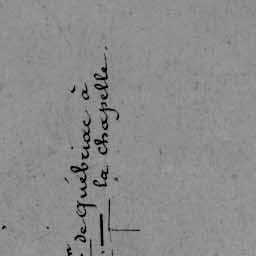 de Québriac à
la chapelle.